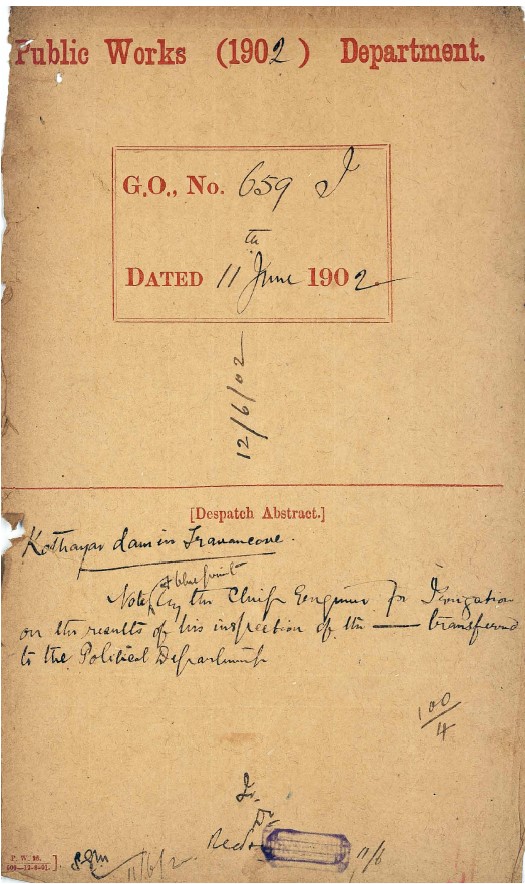 Public Works (1902) Department.
G.O., No. 659 I
DATED 11th June 1902
12/6/02
[Despatch Abstract.]
Kothayar dam in Travancore.
Note & blue print by the Chief Engineer for Irrigation
on the results of his inspection of the — transferred
to the Political Department
100/4
P. W. 16.
11/6/2
11/6